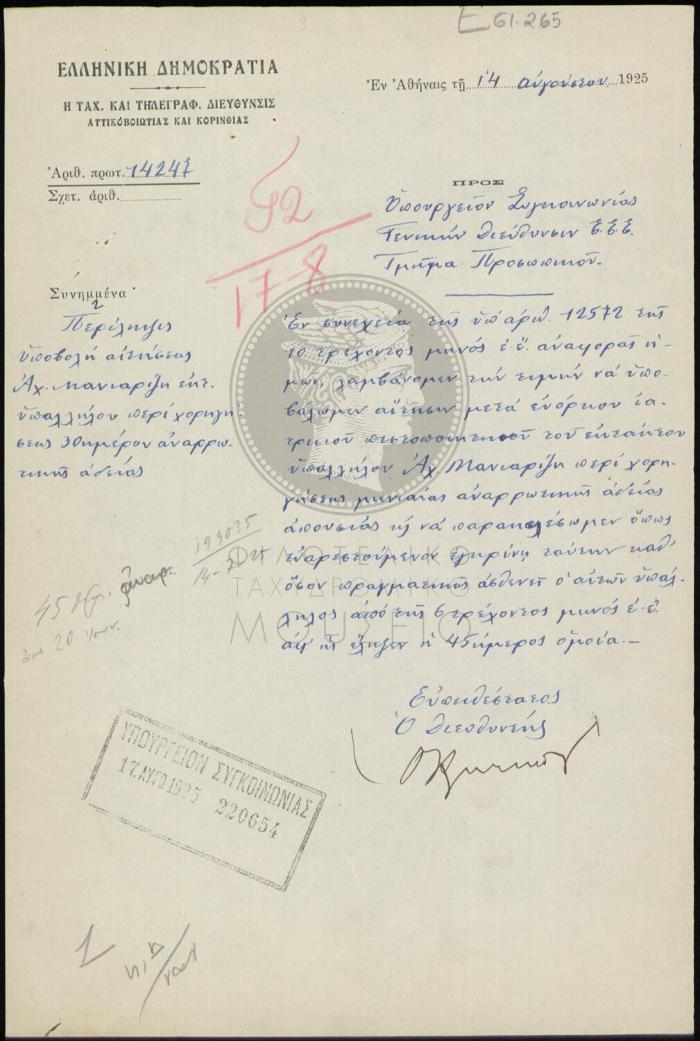 E 61.265
ΕΛΛΗΝΙΚΗ ΔΗΜΟΚΡΑΤΙΑ
Η ΤΑΧ. ΚΑΙ ΤΗΛΕΓΡΑΦ. ΔΙΕΥΘΥΝΣΙΣ
ΑΤΤΙΚΟΒΟΙΩΤΙΑΣ ΚΑΙ ΚΟΡΙΝΘΙΑΣ
Ἐν Ἀθήναις τῇ 14 αὐγούστου 1925
Ἀριθ. πρωτ. 14247
Σχετ. ἀριθ.
52
17-8
ΠΡΟΣ
Ὑπουργεῖον Συγκοινωνίας
Γενικὴν Διεύθυνσιν Τ.Τ.Τ.
Τμῆμα Προσωπικοῦ.
Συνημμένα
2
Περίληψις
ὑποβολὴ αἰτήσεως
Ἀχ. Μανιαρίζη ἐκτ.
ὑπαλλήλου περὶ χορηγή
σεως 30ημέρου ἀναρρω
τικῆς ἀδείας
Ἐν συνεχείᾳ τῆς ὑπ' ἀριθ. 12572 τῆς
10 τρέχοντος μηνὸς ἐ.ἔ. ἀναφορᾶς ἡ
μῶν, λαμβάνομεν τὴν τιμὴν νὰ ὑπο
βάλωμεν αἴτησιν μετὰ ἐνόρκου ἰα
τρικοῦ πιστοποιητικοῦ τοῦ ἐκτάκτου
ὑπαλλήλου Ἀχ Μανιαρίζη περὶ χορη
γήσεως μηνιαίας ἀναρρωτικῆς ἀδείας
ἀπουσίας καὶ νὰ παρακαλέσωμεν ὅπως
εὐαρεστούμενοι ἐγκρίνῃ ταύτην καθ'
ὅσον πραγματικῶς ἀσθενεῖ ὁ αἰτῶν ὑπάλ
ληλος ἀπὸ τῆς 6 τρέχοντος μηνὸς ἐ.ἔ.
ἀφ' ἧς ἔληξεν ἡ 45ήμερος ὁμοία.—
199035
45
20
Εὐπειθέστατος
Ὁ Διευθυντής
ΥΠΟΥΡΓΕΙΟΝ ΣΥΓΚΟΙΝΩΝΙΑΣ
17 ΑΥΓ 1925 220654
ΦΙΛΟΤΕΛΙΚΟ
ΤΑΧΥΔΡΟΜΙΚΟ
ΜΟΥΣΕΙΟ